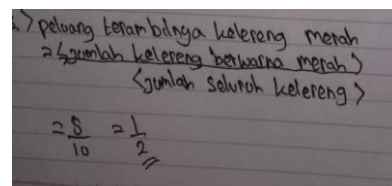 > peluang terambilnya kelereng merah
= <jumlah kelereng berwarna merah>
<jumlah seluruh kelereng>
= 5/10 = 1/2